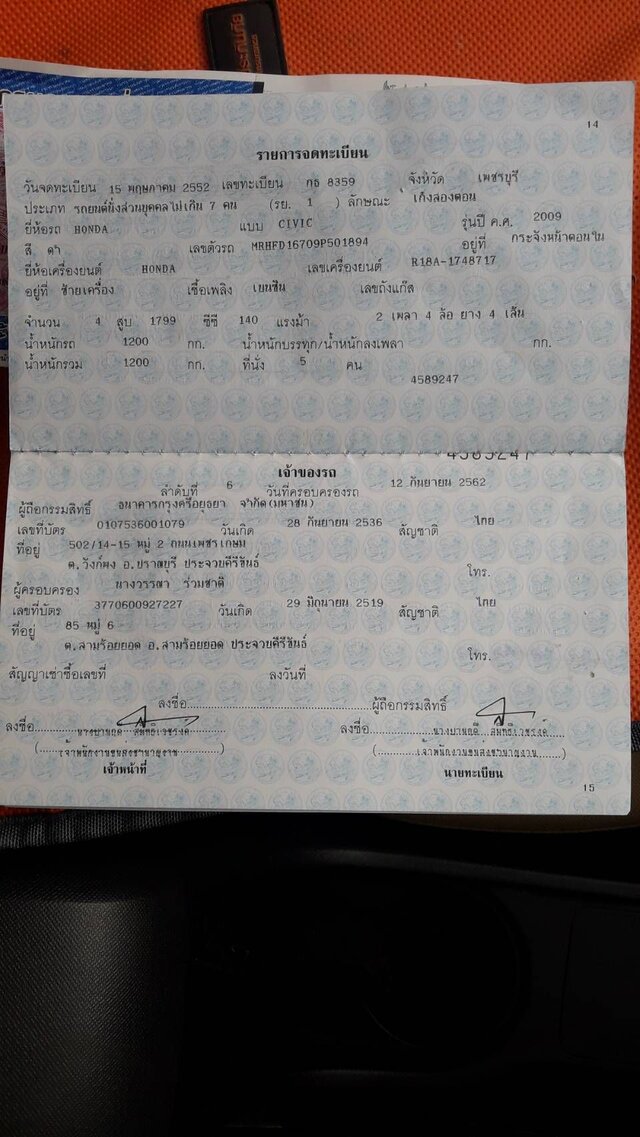 14
รายการจดทะเบียน
วันจดทะเบียน 15 พฤษภาคม 2552 เลขทะเบียน กธ 8359 จังหวัด เพชรบุรี
ประเภท รถยนต์นั่งส่วนบุคคลไม่เกิน 7 คน (รย. 1 ) ลักษณะ เก๋งสองตอน
ยี่ห้อรถ HONDA แบบ CIVIC รุ่นปี ค.ศ. 2009
สี ดำ เลขตัวรถ MRHFD16709P501894 อยู่ที่ กระจังหน้าตอนใน
ยี่ห้อเครื่องยนต์ HONDA เลขเครื่องยนต์ R18A-1748717
อยู่ที่ ซ้ายเครื่อง เชื้อเพลิง เบนซิน เลขถังแก๊ส
จำนวน 4 สูบ 1799 ซีซี 140 แรงม้า 2 เพลา 4 ล้อ ยาง 4 เส้น
น้ำหนักรถ 1200 กก. น้ำหนักบรรทุก/น้ำหนักลงเพลา กก.
น้ำหนักรวม 1200 กก. ที่นั่ง 5 คน
4589247
4589247
เจ้าของรถ
ลำดับที่ 6 วันที่ครอบครองรถ 12 กันยายน 2562
ผู้ถือกรรมสิทธิ์ ธนาคารกรุงศรีอยุธยา จำกัด(มหาชน)
เลขที่บัตร 0107536001079 วันเกิด 28 กันยายน 2536 สัญชาติ ไทย
ที่อยู่ 502/14-15 หมู่ 2 ถนนเพชรเกษม
ต.วังก์พง อ.ปราณบุรี ประจวบคีรีขันธ์ โทร.
ผู้ครอบครอง นางวรรณา ร่วมชาติ
เลขที่บัตร 3770600927227 วันเกิด 29 มิถุนายน 2519 สัญชาติ ไทย
ที่อยู่ 85 หมู่ 6
ต.สามร้อยยอด อ.สามร้อยยอด ประจวบคีรีขันธ์ โทร.
สัญญาเช่าซื้อเลขที่ ลงวันที่
ลงชื่อ ผู้ถือกรรมสิทธิ์
ลงชื่อ ลงชื่อ
(เจ้าพนักงานขนส่งชำนาญงาน) (เจ้าพนักงานขนส่งชำนาญงาน)
เจ้าหน้าที่ นายทะเบียน
15